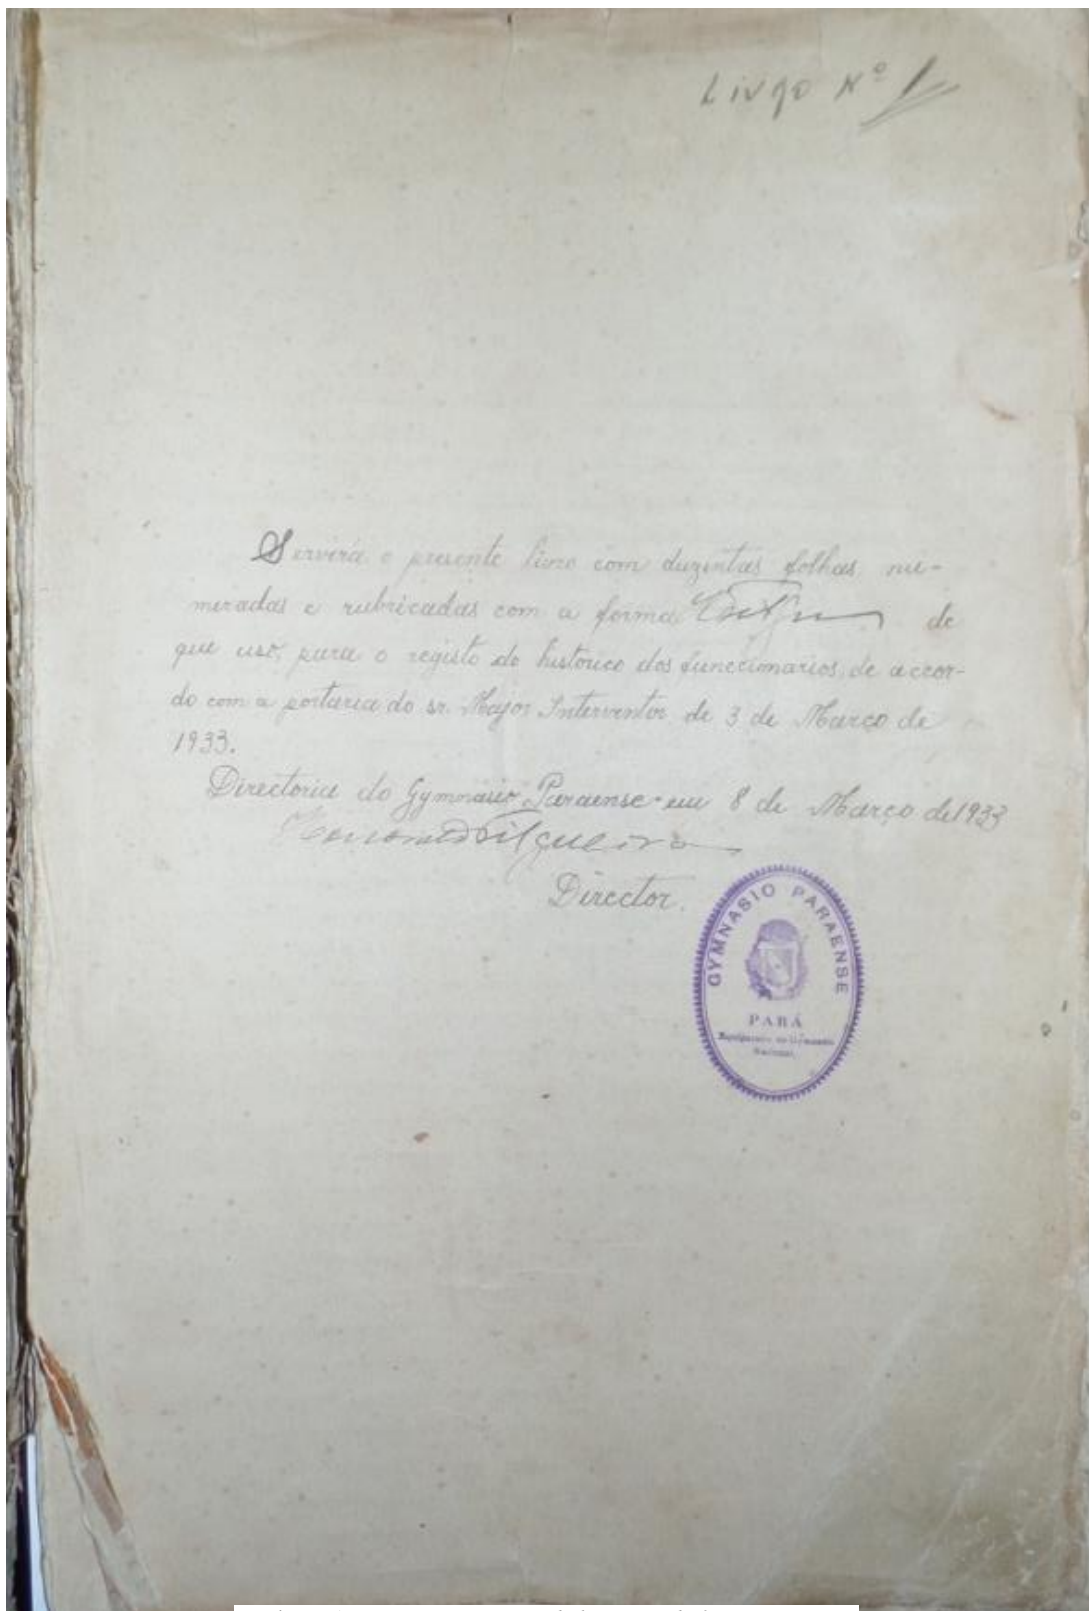 Livro Nº 1
Servirá o presente livro com duzentas folhas, nu-
meradas e rubricadas com a forma de
que uso, para o registo do historico dos funccionarios, de accor-
do com a portaria do sr. Major Interventor de 3 de Março de
1933.
Directoria do Gymnasio Paraense em 8 de Março de 1933
Director.
GYMNASIO PARAENSE
PARÁ
Equiparado ao Gymnasio
Nacional